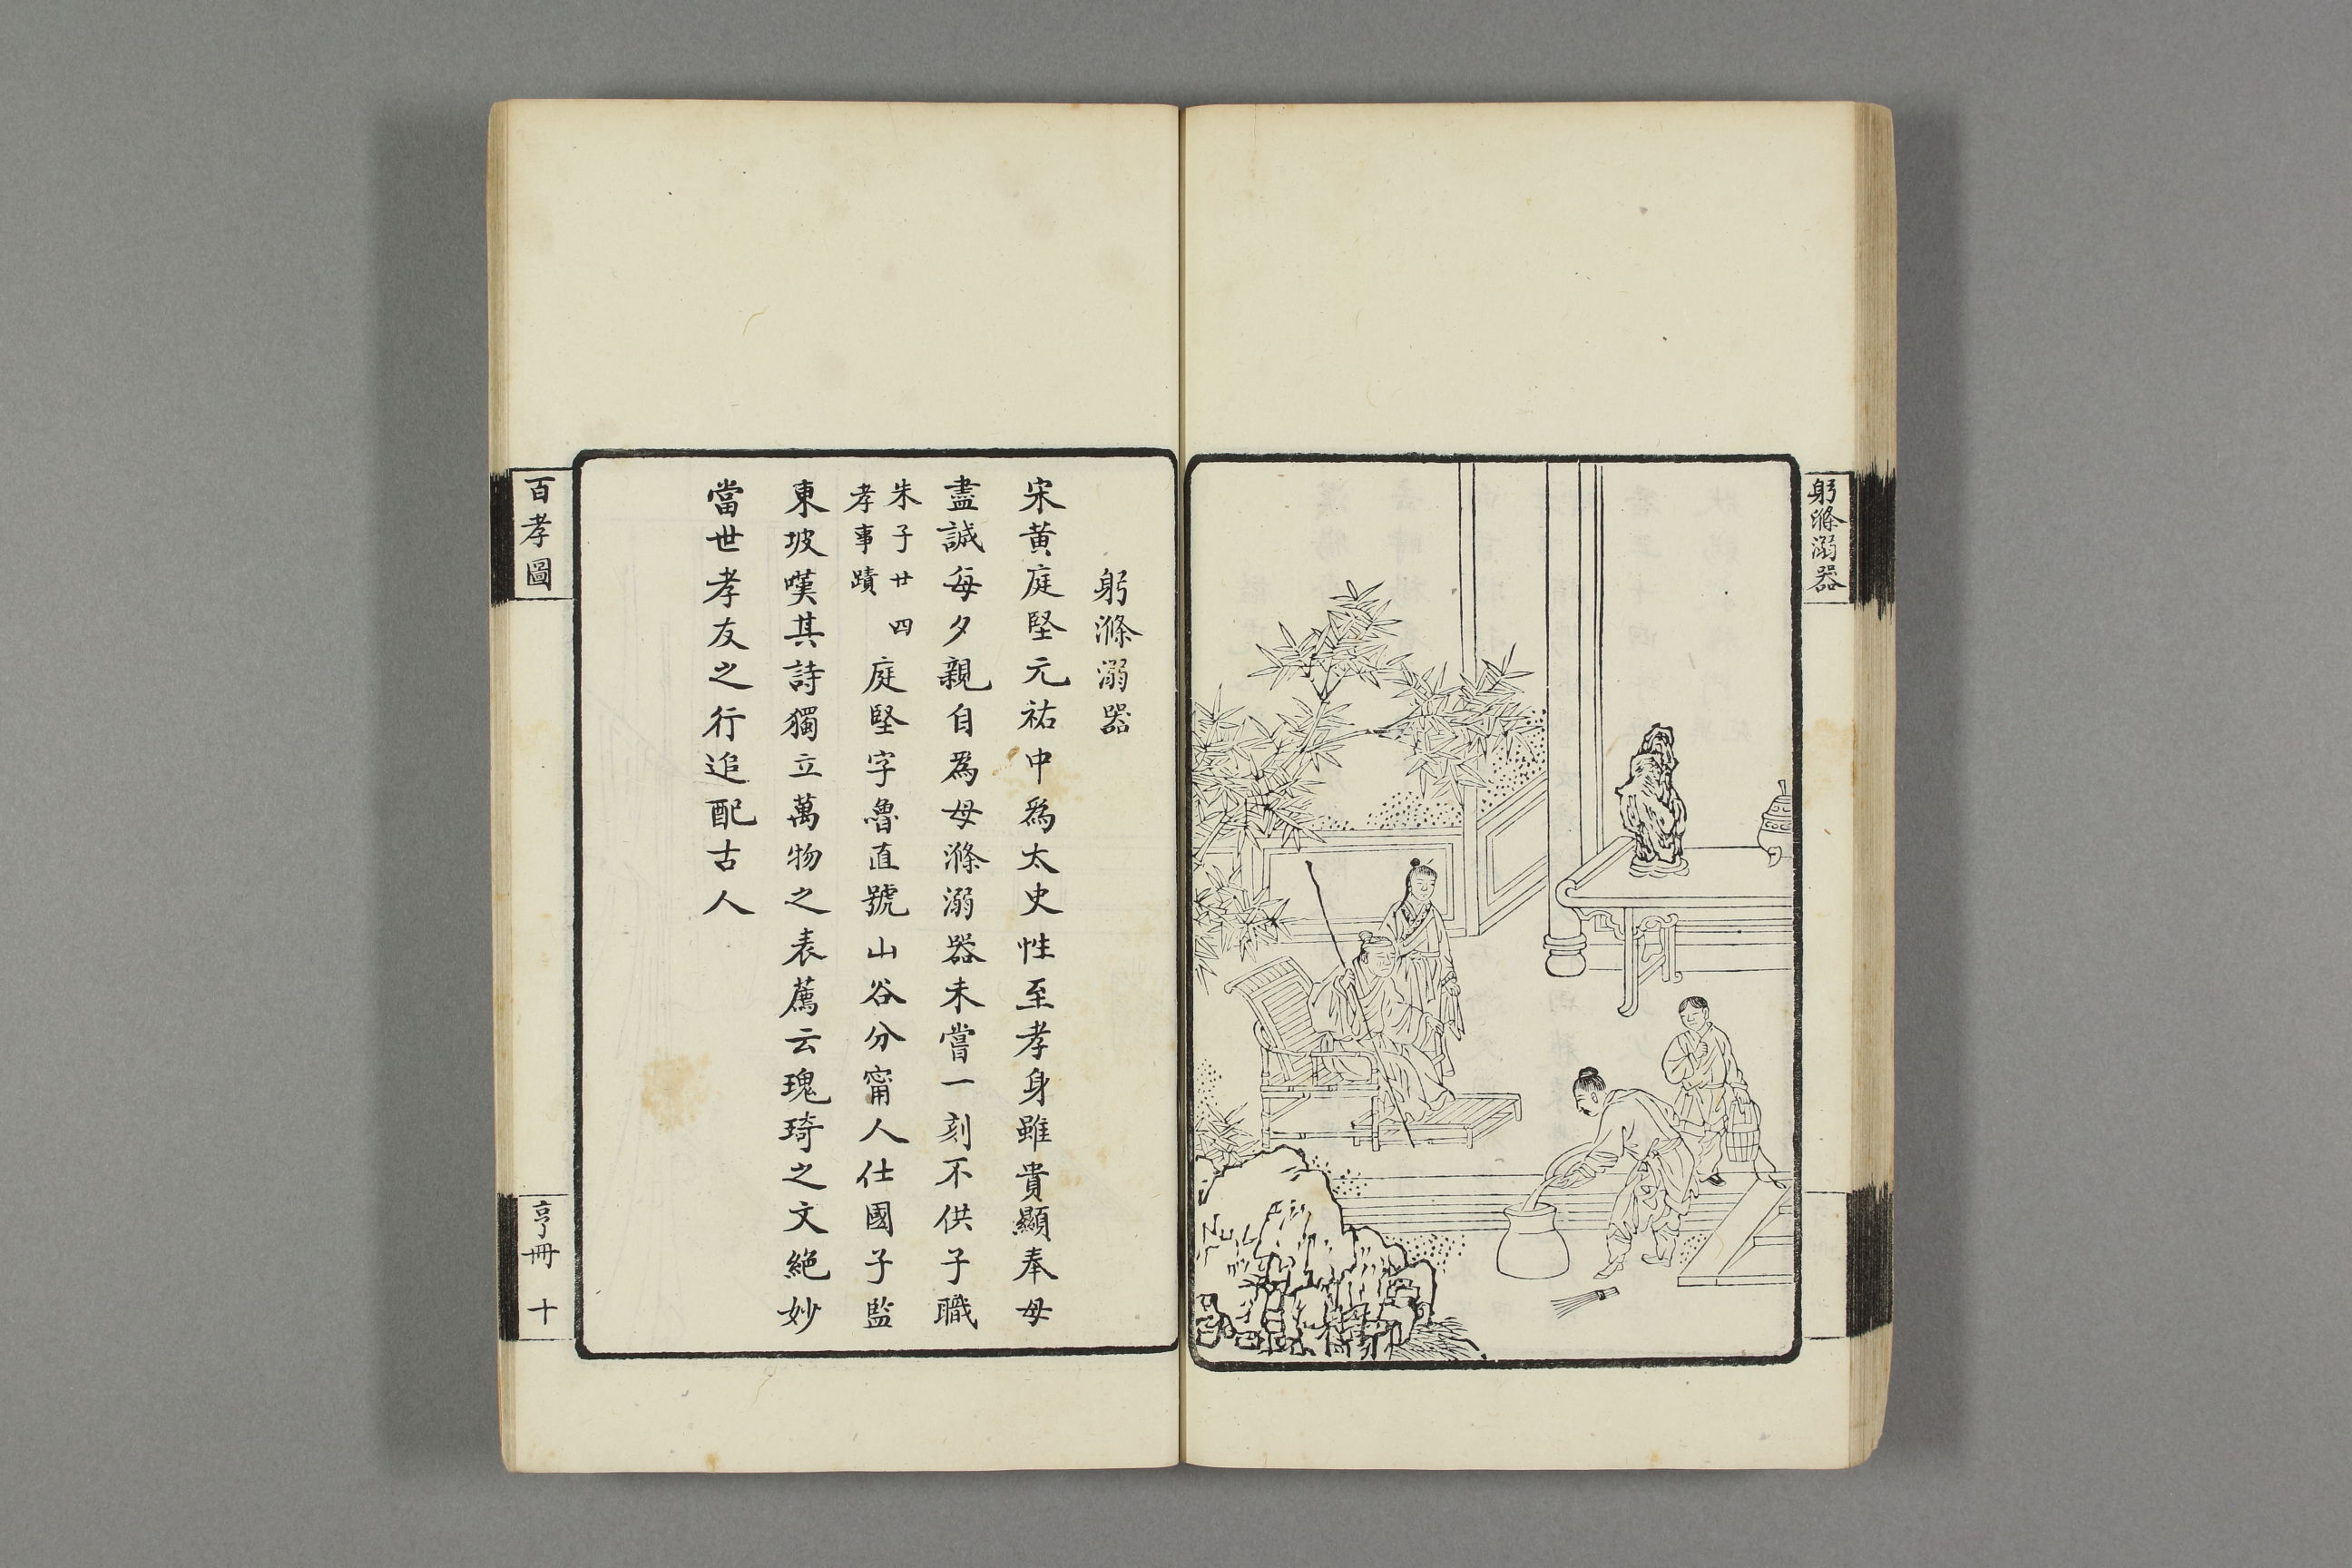 躬滌溺器
躬滌溺器
宋黄庭堅元祐中為太史性至孝身雖貴顯奉母
盡誠每夕親自為母滌溺器未嘗一刻不供子職
朱子廿四
孝事蹟
庭堅字魯直號山谷分甯人仕國子監
東坡嘆其詩獨立萬物之表薦云瑰琦之文絶妙
當世孝友之行追配古人
百孝圖
亨冊 十